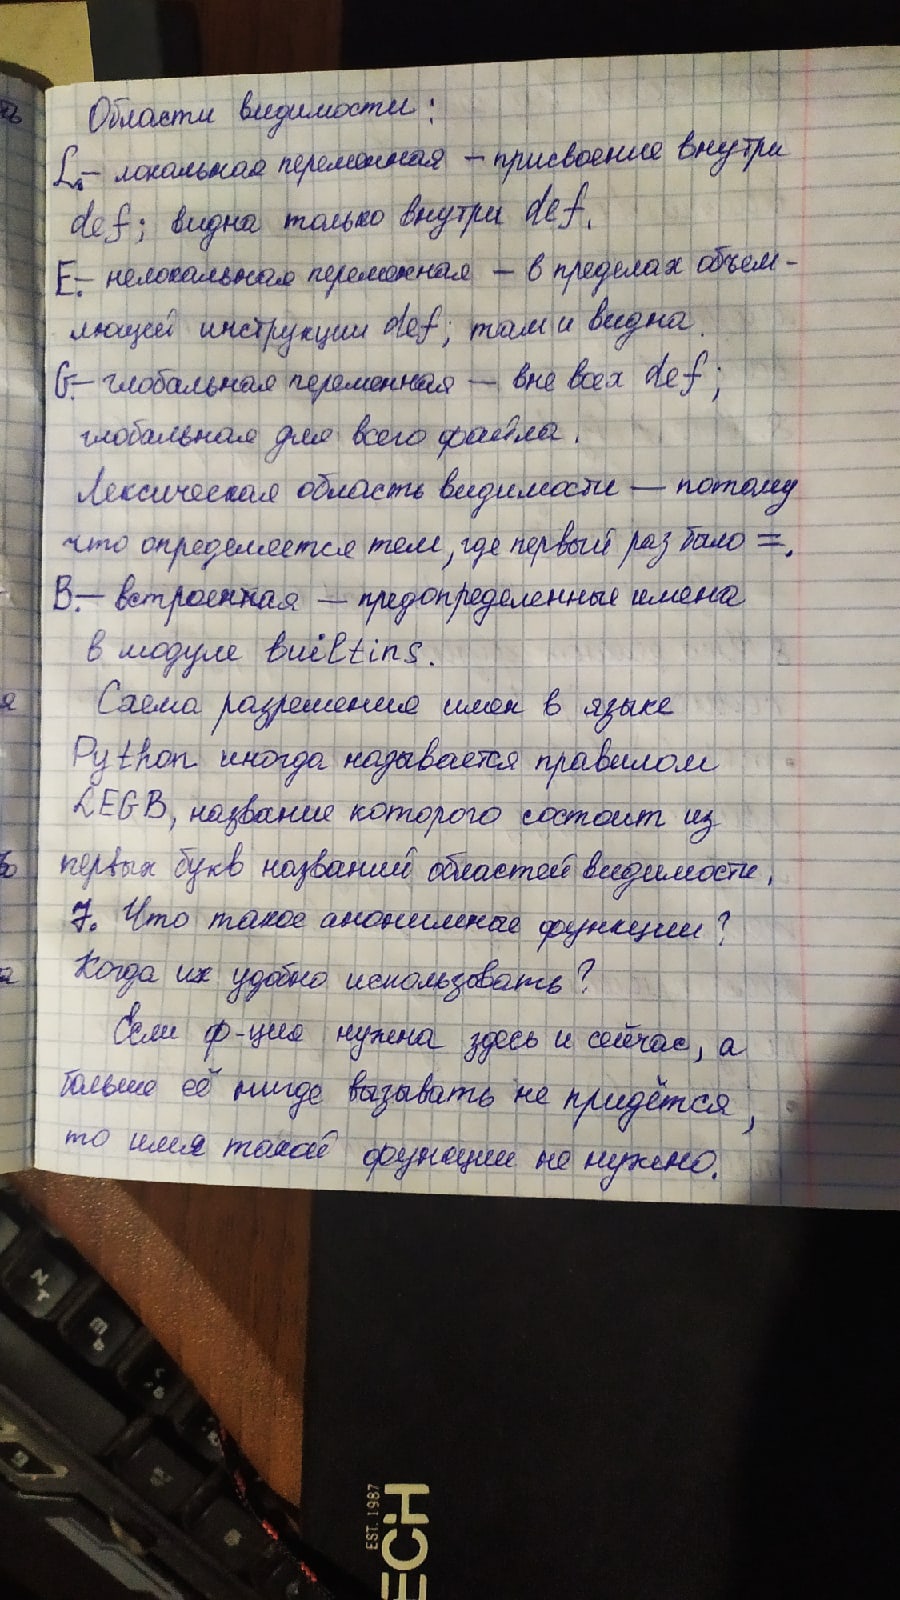 Области видимости:
L. – локальная переменная – присвоение внутри
def; видна только внутри def.
E. – нелокальная переменная – в пределах объем-
лющей инструкции def; там и видна.
G. – глобальная переменная — вне всех def;
глобальная для всего файла.
Лексическая область видимости — потому
что определяется тем, где первый раз было =.
B. – встроенная — предопределенные имена
в модуле builtins.
Схема разрешения имен в языке
Python иногда называется правилом
LEGB, название которого состоит из
первых букв названий областей видимости.
7. Что такое анонимные функции?
Когда их удобно использовать?
Если ф-ция нужна здесь и сейчас, а
больше её нигде вызывать не придётся,
то имя такой функции не нужно.
EST. 1987
ECH